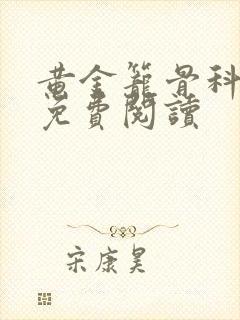 黄金籠骨科
免費閱讀
宋康昊